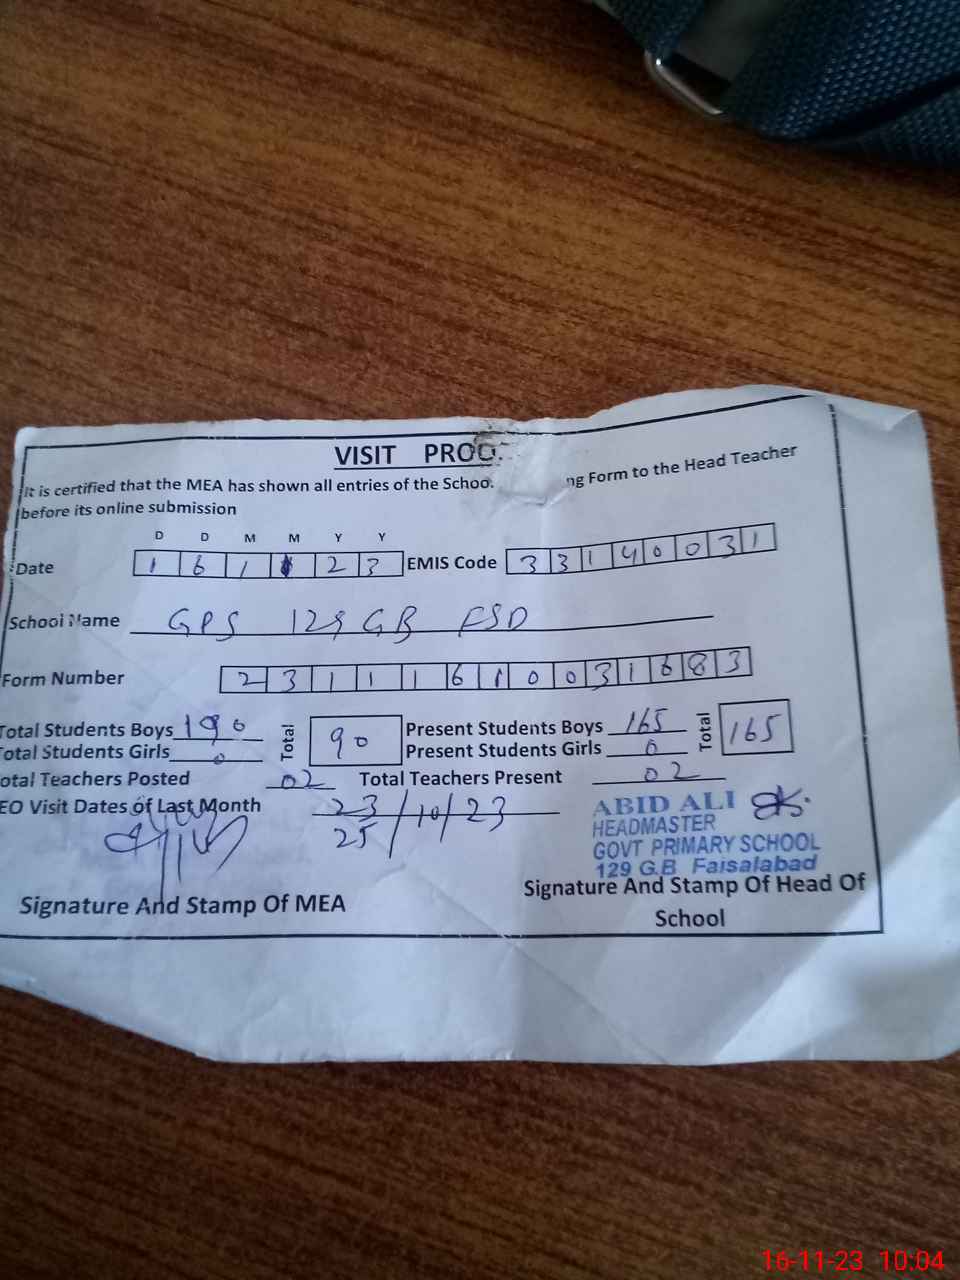 VISIT PROO
It is certified that the MEA has shown all entries of the Schoo ng Form to the Head Teacher
before its online submission
D D M M Y Y
Date 1 6 1 1 2 3 EMIS Code 3 3 1 4 0 0 3 1
School Name GPS 129 GB FSD
Form Number 2 3 1 1 1 6 1 0 0 3 1 6 8 3
Total Students Boys 190 Total 90 Present Students Boys 165 Total 165
Total Students Girls 0 Present Students Girls 0
otal Teachers Posted 02 Total Teachers Present 02
EO Visit Dates of Last Month 23/10/23
25
ABID ALI
HEADMASTER
GOVT PRIMARY SCHOOL
129 G.B Faisalabad
Signature And Stamp Of MEA Signature And Stamp Of Head Of
School
16-11-23 10:04